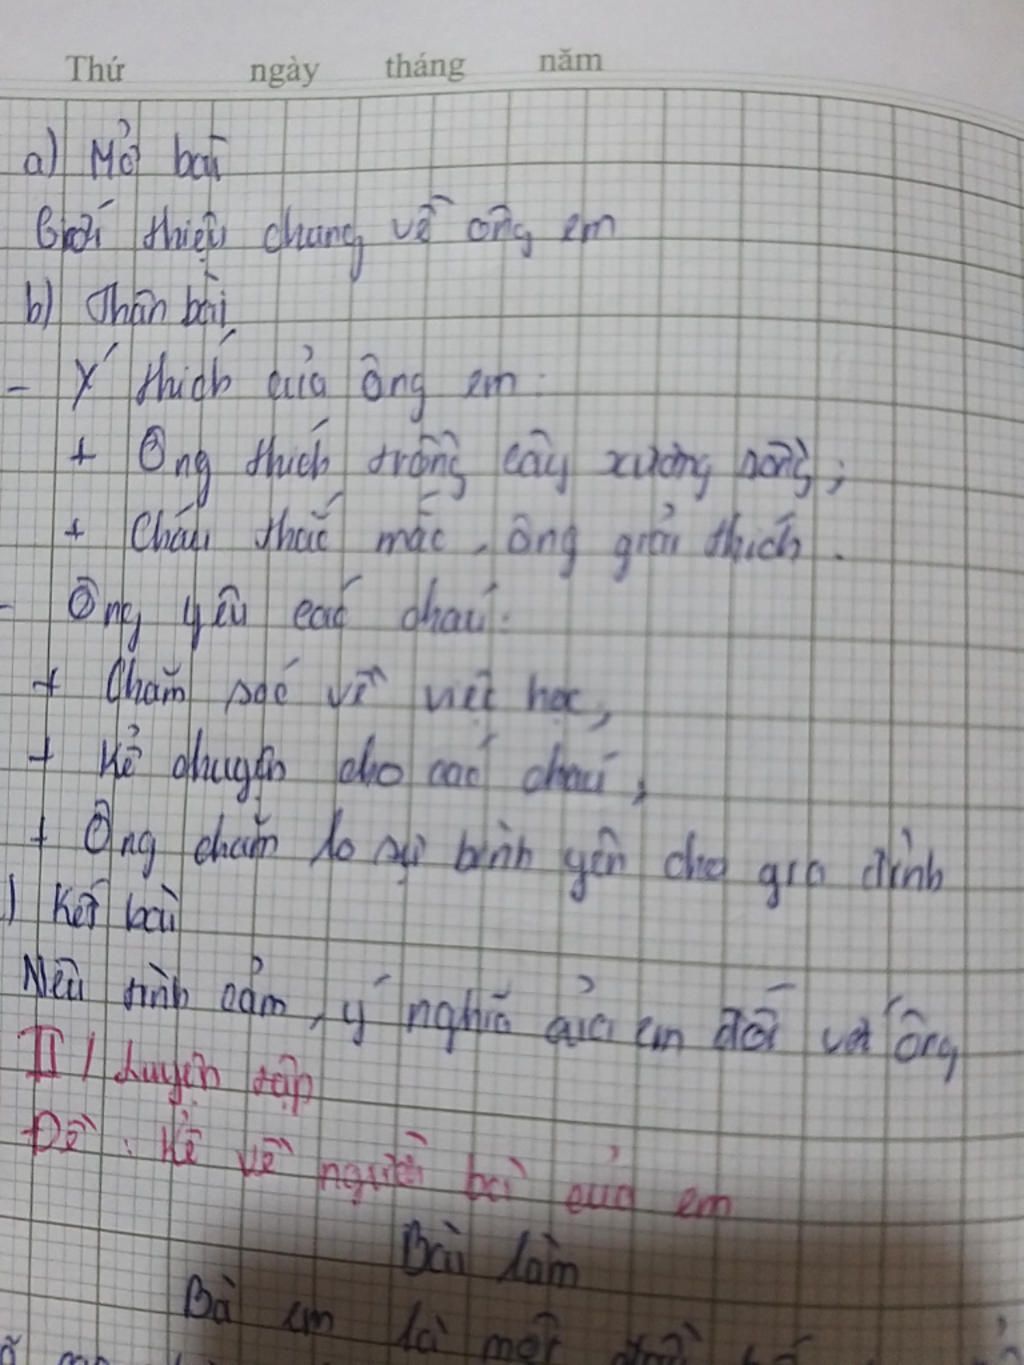 Thứ ngày tháng năm
a) Mở bài
Giới thiệu chung về ông em
b) Thân bài
- Ý thích của ông em:
+ Ông thích trồng cây xương rồng;
+ Cháu thắc mắc, ông giải thích.
- Ông yêu các cháu:
+ Chăm sóc về việc học,
+ Kể chuyện cho các cháu;
+ Ông chăm lo sự bình yên cho gia đình
) Kết bài
Nêu tình cảm, ý nghĩ của em đối với ông
II/ Luyện tập
Đề: Kể về người bà của em
Bài làm
Bà em là một